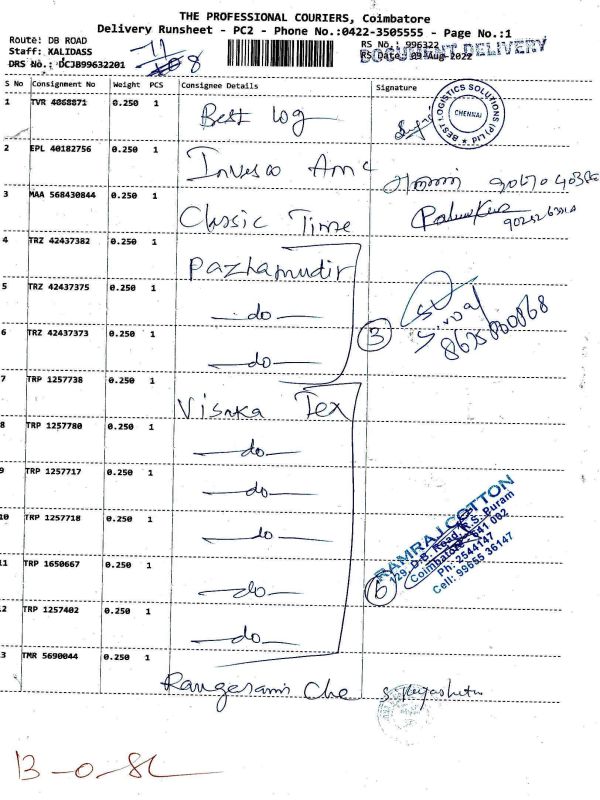 THE PROFESSIONAL COURIERS, Coimbatore
Delivery Runsheet - PC2 - Phone No.:0422-3505555 - Page No.:1
Route: DB ROAD
Staff: KALIDASS
DRS No.: DCJB99632201
11
8
RS No.: 996322
RS Date: 09-Aug-2022
DOCUMENT DELIVERY
S No Consignment No Weight PCS Consignee Details Signature
1 TVR 4068871 0.250 1 Best Log
BEST LOGISTICS SOLUTIONS (P) LTD
CHENNAI
2 EPL 40182756 0.250 1 Invesco Amc
3 MAA 568430844 0.250 1 Classic Time
4 TRZ 42437382 0.250 1 Pazhamudir
5 TRZ 42437375 0.250 1 —do—
6 TRZ 42437373 0.250 1 —do—
3
8625860868
7 TRP 1257738 0.250 1 Visaka Tex
8 TRP 1257780 0.250 1 —do—
9 TRP 1257717 0.250 1 —do—
10 TRP 1257718 0.250 1 —do—
11 TRP 1650667 0.250 1 —do—
12 TRP 1257402 0.250 1 —do—
6
RAMRAJ COTTON
129, D.B. Road, R.S. Puram
Coimbatore - 641 002
Ph: 2544147
Cell: 99655 36147
13 TMR 5690044 0.250 1 Rangesami Che
13-0-8L